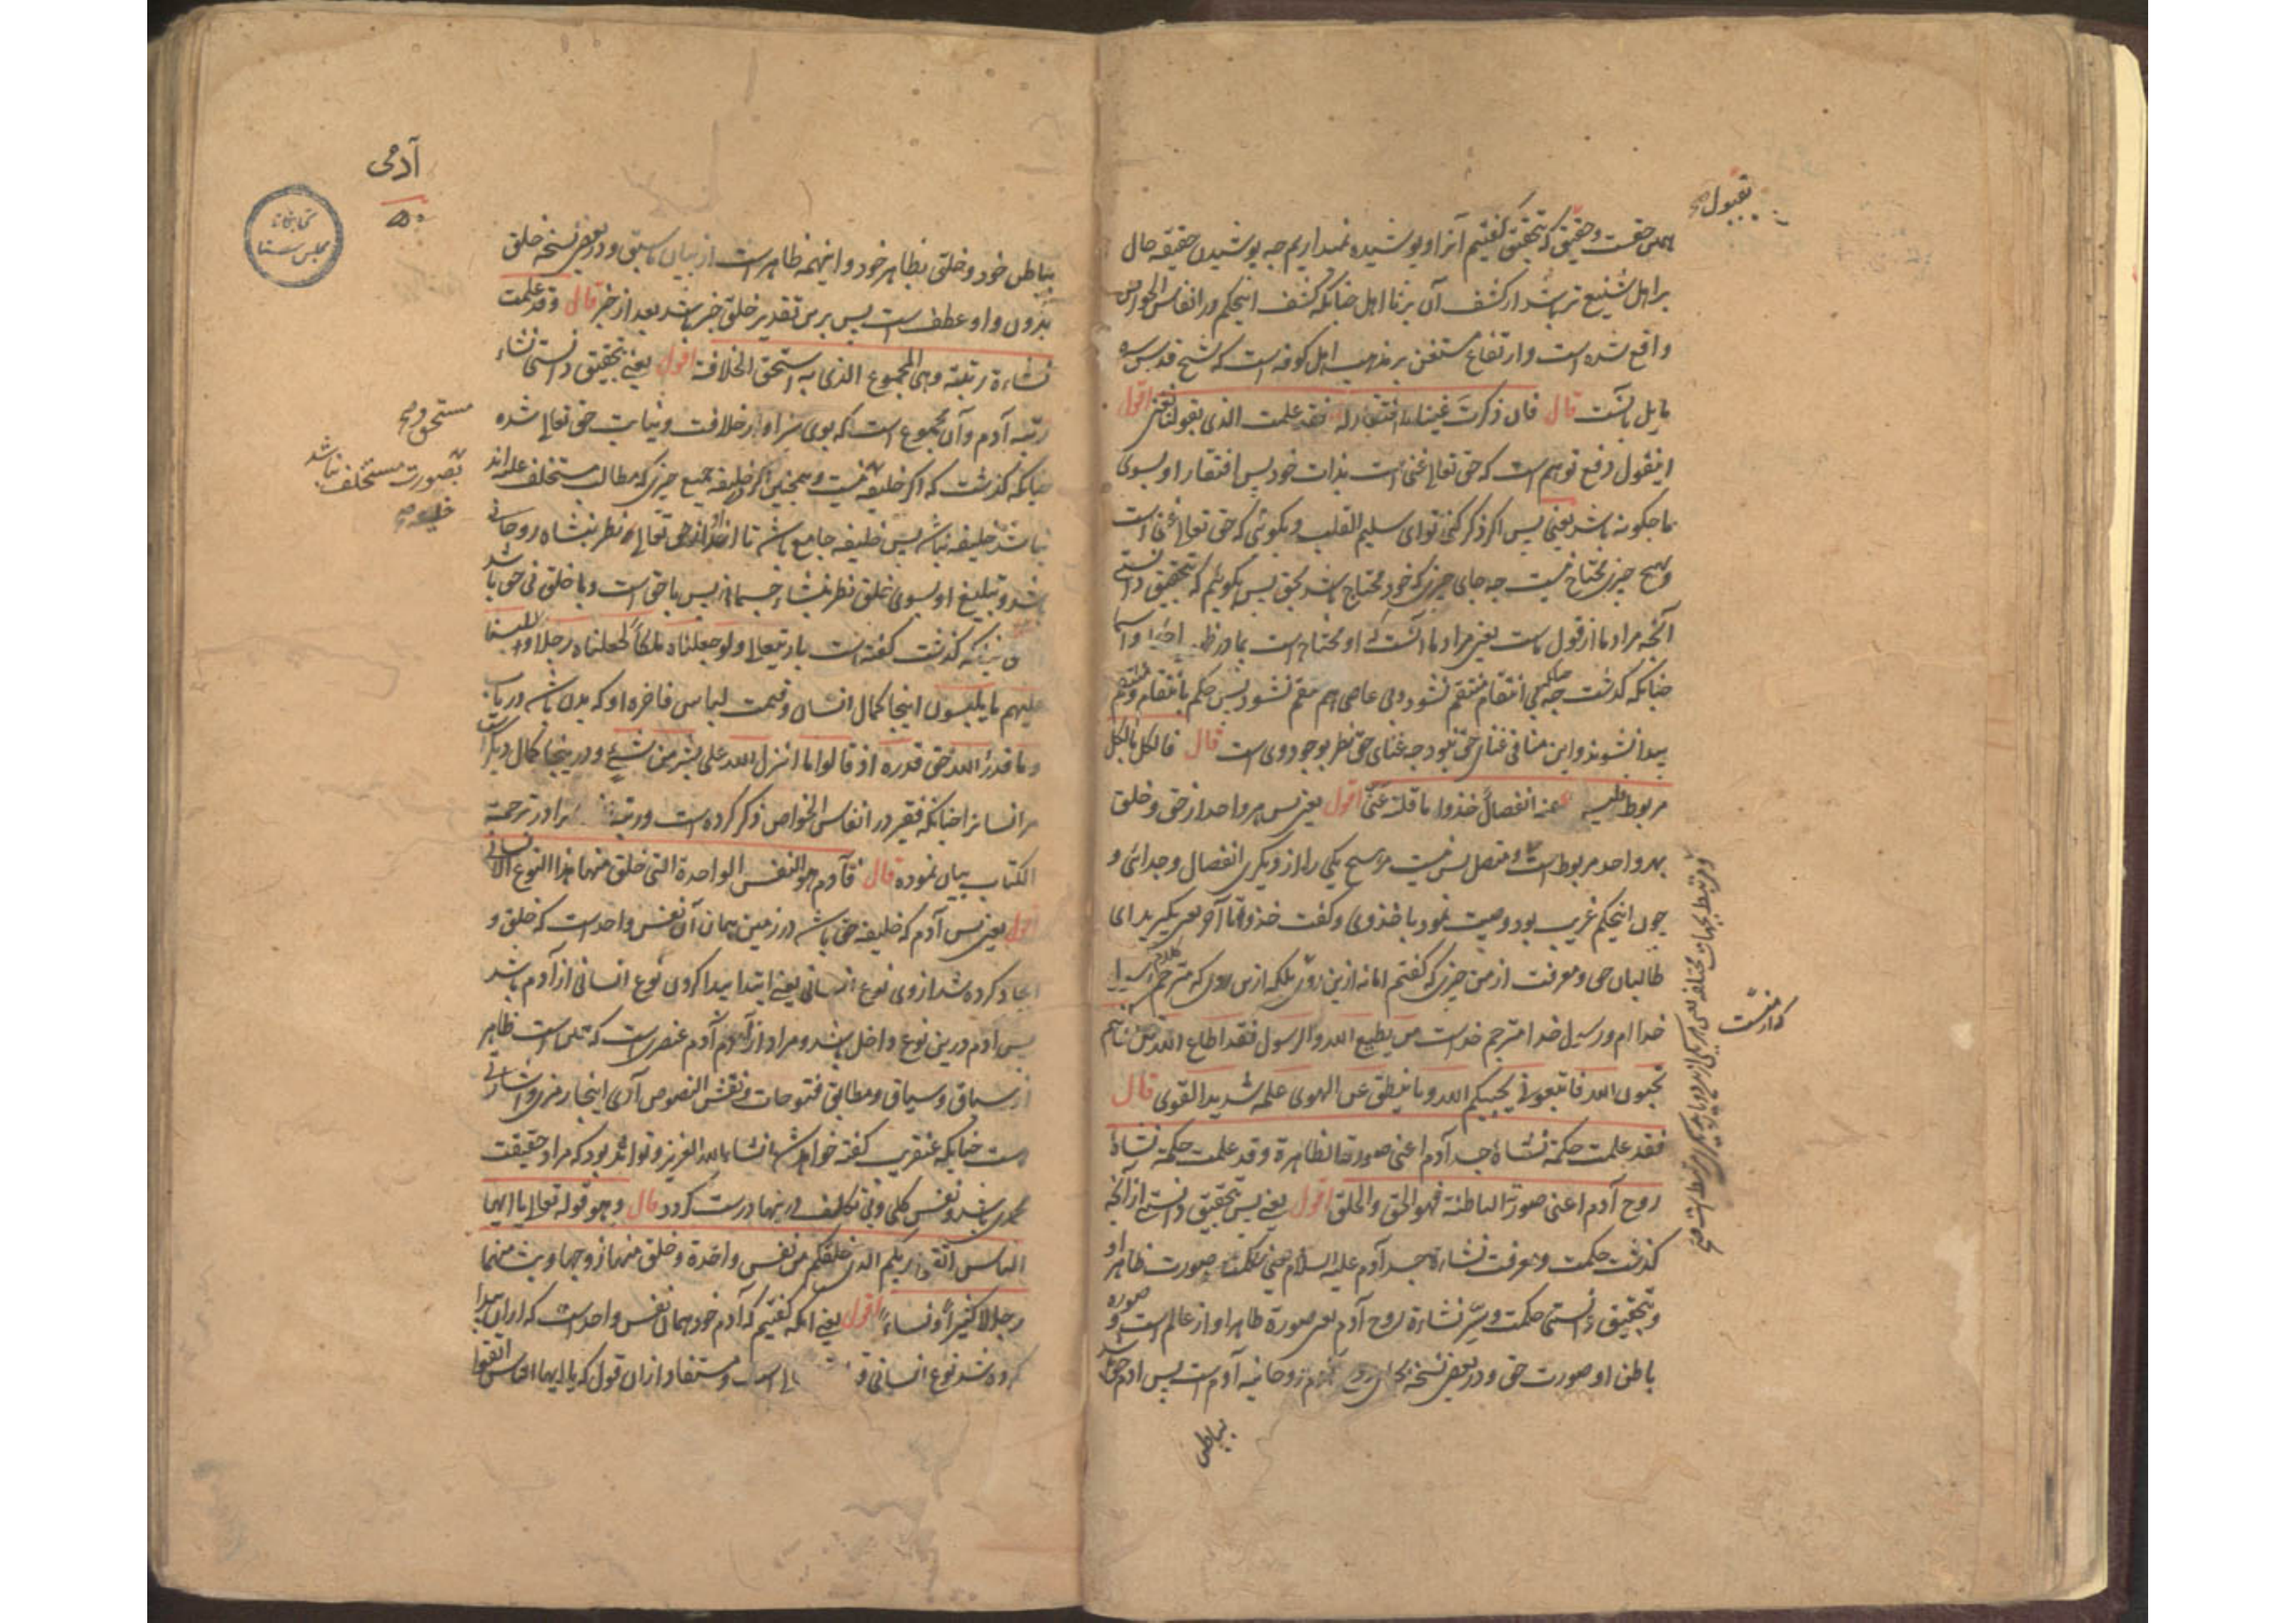 بقبول صح
همین حقست و حقیق که بتحقیق گفتیم آنرا و پوشیده نمیداریم چه پوشیدن حقیقه حال
بر اهل شنیع تر باشد از کشف آن بر نااهل چنانکه کشف اینحکم در انفاس الخواص
واقع شده است و ارتفاع مستغن بر مذهب اهل کوفه است که شیخ قدس سره
مایل بآنست قال فان ذکرت غنیا لا افتقار له فقد علمت الذی بقولنا نعنی اقول
اینقول دفع توهم است که حق تعالی غنی است بذات خود پس افتقار او بسوی
ما چگونه باشد یعنی پس اگر ذکر کنی تو ای سلیم القلب و بگوئی که حق تعالی غنا است
و بهیچ چیزی محتاج نیست چه جای چیزی که خود محتاج باشد بحق پس بگوئیم که بتحقیق دانستی
آنچه مراد ما از قول ماست یعنی مراد ما آنست که او محتاج است بما در ظهور و اسما
چنانکه گذشت چه بی انتقام منتقم نشود و بی عاصی هم منتقم نشود پس حکم بانتقام و منتقم
پیدا نشوند و این منافی غنای حق نبود چه غنای حق نظر بوجود وی است قال فالکل بالکل
مربوط فلیس له عنه انفصال خذوا ما قلته عنی اقول یعنی پس هر واحد از حق و خلق
بهر واحد مربوط است و متصل پس نیست مر هیچ یکی را از دیگری انفصال و جدائی و
چون اینحکم غریب بود وصیت نمود باخذ وی و گفت خذوا تا آخر یعنی بگیرید ای
طالبان حق و معرفت از من چیزی که گفتم اما نه ازین روی بلکه ازین روی که مترجم کلام رسول
خدا ام و رسول خدا مترجم خداست من یطیع الله و الرسول فقد اطاع الله ان کنتم
تحبون الله فاتبعونی یحببکم الله و ما ینطق عن الهوی علمه شدید القوی قال
فقد علمت حکمة نشاة جسد آدم اعنی صورته الظاهرة و قد علمت حکمة نشاة
روح آدم اعنی صورته الباطنة فهو الحق و الخلق اقول یعنی پس بتحقیق دانستی از آنچه
گذشت حکمت و معرفت نشاءة جسد آدم علیه السلام یعنی حکمت صورت ظاهر او
و بتحقیق دانستی حکمت و سر نشاءة روح آدم یعنی صورة ظاهر او از عالم است و صوره
باطن او صورت حق و در بعضی نسخه بجای روح آدم روحانیه آدم است پس آدم حق باشد
بباطن
که از منست
آدمی
۵۰
کتابخانه مجلس سنا
بباطن خود و خلق بظاهر خود و اینهمه ظاهر است از بیان سابق و در بعضی نسخه خلق
بدون واو عطف است پس برین تقدیر خلق خبر باشد بعد از خبر قال و قد علمت
نشاءة رتبته و هی المجموع الذی به استحق الخلافة اقول یعنی بتحقیق دانستی نشاء
رتبه آدم و آن مجموع است که بوی سزاوار خلافت و نیابت حق تعالی شده
چنانکه گذشت که اگر خلیفه نیست و همچنین اگر در خلیفه جمیع چیزی که مطالب مستخلف علیه اند
نباشد خلیفه نباشد پس خلیفه جامع باشد تا اخذ او از حق تعالی نظر بنشاه روحانی
باشد و تبلیغ او بسوی خلق نظر بنشاء جسمانی پس با حق است و با خلق فی حق باشد
گذشت گفته است باریتعالی و لو جعلناه ملکا لجعلناه رجلا و للبسنا
علیهم ما یلبسون اینجا کمال انسان و قیمت لباس فاخره او که بدان باشد دریاب
و ما قدروا الله حق قدره اذ قالوا ما انزل الله علی بشر من شیء و در اینجا کمال دیگر است
مر انسان را چنانکه فقیر در انفاس الخواص ذکر کرده است و در ترجمة
الکتاب بیان نموده قال فآدم هو النفس الواحدة التی خلق منها هذا النوع الانسانی
اقول یعنی پس آدم که خلیفه حق باشد در زمین همان آن نفس واحد است که خلق و
ایجاد کرده شد از وی نوع انسانی یعنی ابتدا پیدا کردن نوع انسانی از آدم باشد
پس آدم درین نوع داخل باشد و مراد از آدم آدم عنصری است ظاهر
از سباق و سیاق و مطابق فتوحات و نقش الفصوص آدمی اینجا رمزی و اشارتی
است چنانکه عنقریب گفته خواهد شد انشاء الله العزیز و تواند بود که مراد حقیقت
محمدی باشد و نفس کلی و بی تکلف درینها درست گردد قال و هو قوله تعالی یا ایها
الناس اتقوا ربکم الذی خلقکم من نفس واحدة و خلق منها زوجها و بث منهما
رجالا کثیرا و نساء اقول یعنی آنکه گفتیم که آدم خود همان نفس واحد است که از آن پیدا
کرده شد نوع انسانی و مستفاد از آن قول که یا ایها الناس اتقوا
مستحق و صح
بصورت مستخلف نباشد
خلیفه صح